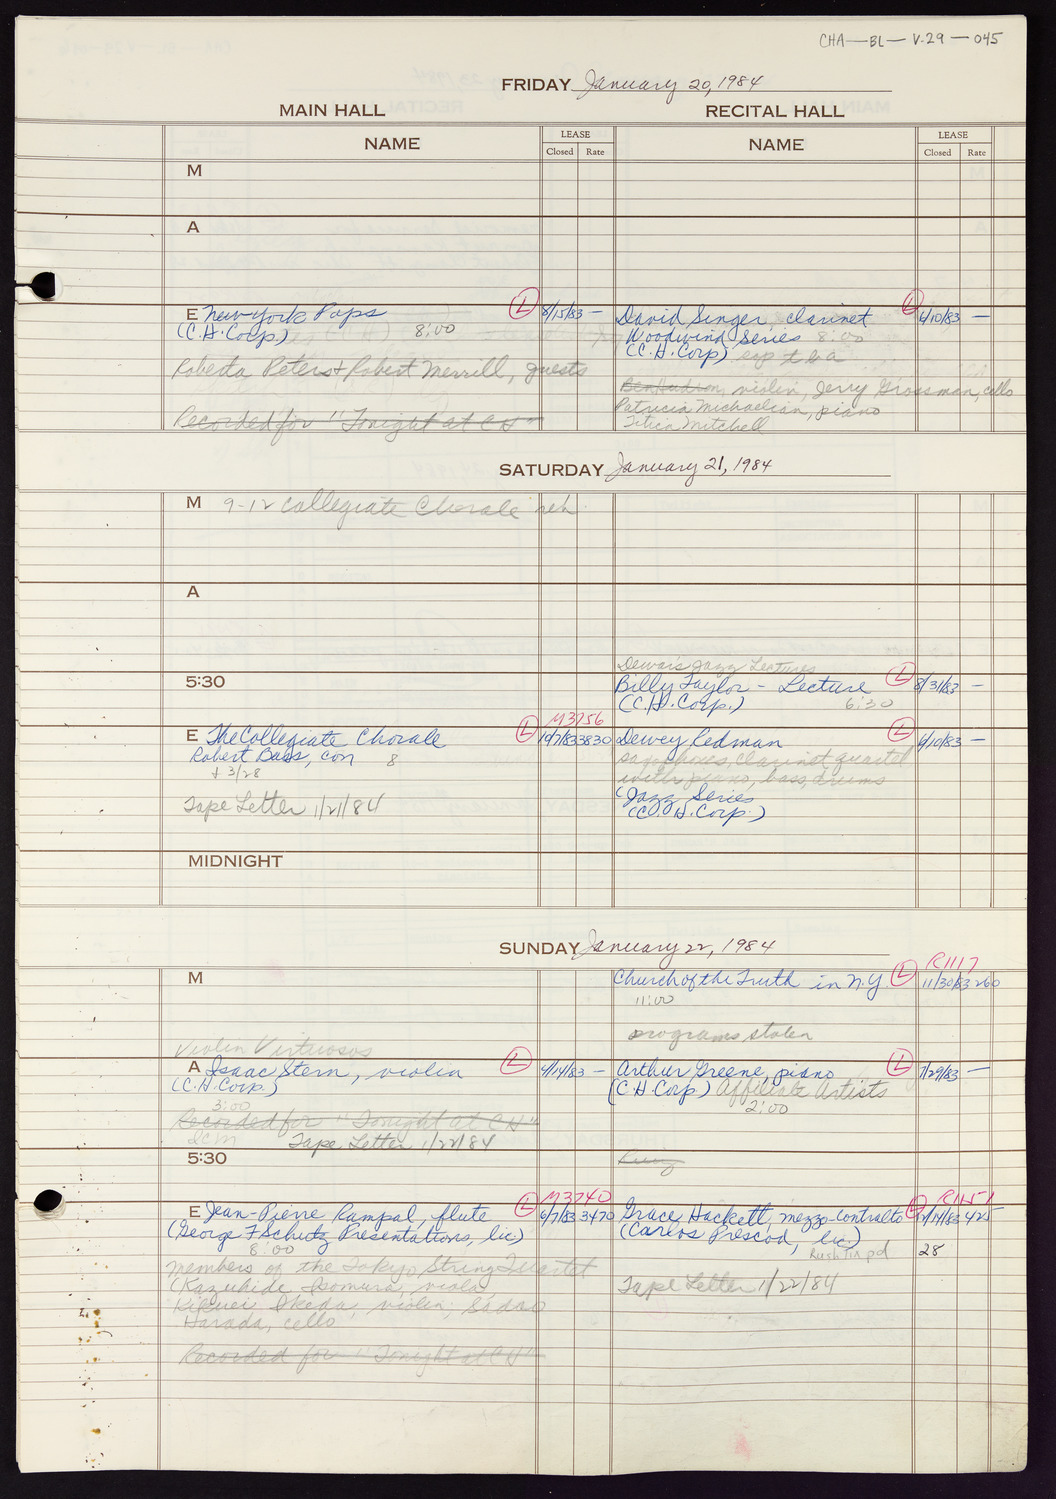 CHA—BL— V.29 — 045
FRIDAY January 20, 1984
MAIN HALL RECITAL HALL
NAME LEASE Closed Rate NAME LEASE Closed Rate
M
A
E New York Pops (L) 8/15/83 —
(C.H. Corp.) 8:00
Roberta Peters + Robert Merrill, guests
Recorded for "Tonight at CH"
David Singer, clarinet (L) 6/10/83 —
Woodwind Series 8:00
(C.H. Corp) exp t b a
Ben Hudson, violin, Jerry Grossman, cello
Patricia Michaelian, piano
Mitchell
SATURDAY January 21, 1984
M 9-12 Collegiate Chorale reh
A
5:30
Jazz Lectures
Billy Taylor - Lecture (L) 8/31/83 —
(C.H. Corp.) 6:30
M3756
E The Collegiate Chorale (L) 10/7/83 3830
Robert Bass, con 8
+ 3/28
Tape Letter 1/21/84
Dewey Redman (L) 6/10/83 —
saxophones, clarinet, quartet
with piano, bass, drums
(Jazz Series
(C.H. Corp.)
MIDNIGHT
SUNDAY January 22, 1984
M
R1117
Church of the Truth in N.Y. (L) 11/30/83 260
11:00
programs stolen
Violin Virtuosos
A Isaac Stern, violin (L) 4/14/83 —
(C.H. Corp.)
3:00
Recorded for "Tonight at CH"
Tape Letter 1/22/84
Arthur Greene, piano (L) 7/29/83 —
(C.H. Corp) Affiliate Artists
2:00
5:30
M3740
E Jean-Pierre Rampal, flute (L) 6/7/83 3470
(George F Schutz Presentations, Inc)
8:00
members of the Tokyo String Quartet
(Kazuhide Isomura, viola,
Kikuei Ikeda, violin; Sadao
Harada, cello
Recorded for "Tonight at CH"
Grace Hackett, mezzo-contralto (L) 425
(Carlos Prescod, Inc.)
pd 28
Tape Letter 1/22/84